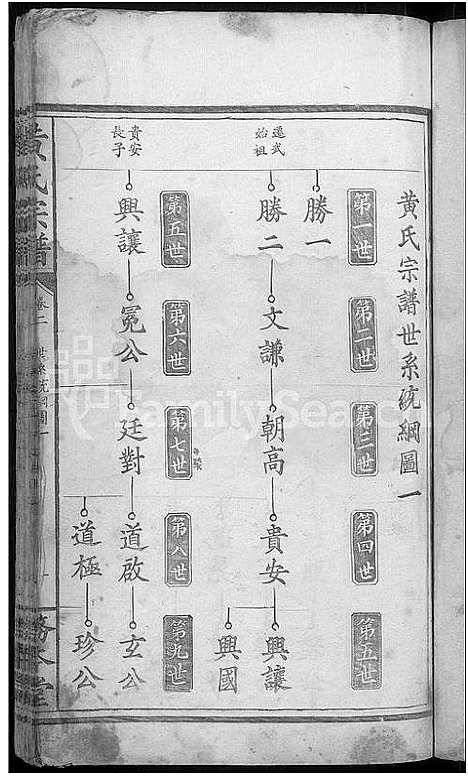 黃氏宗譜世系統綱圖一
第一世
第二世
第三世
第四世
第五世
勝一
遷武始祖
勝二
文謙
朝高
貴安
興讓
興國
第五世
第六世
第七世
第八世
第九世
貴安長子
興讓
冕公
廷對
道啟
玄公
道極
珍公
黃氏宗譜
卷二
世系統綱圖一
FamilySearch